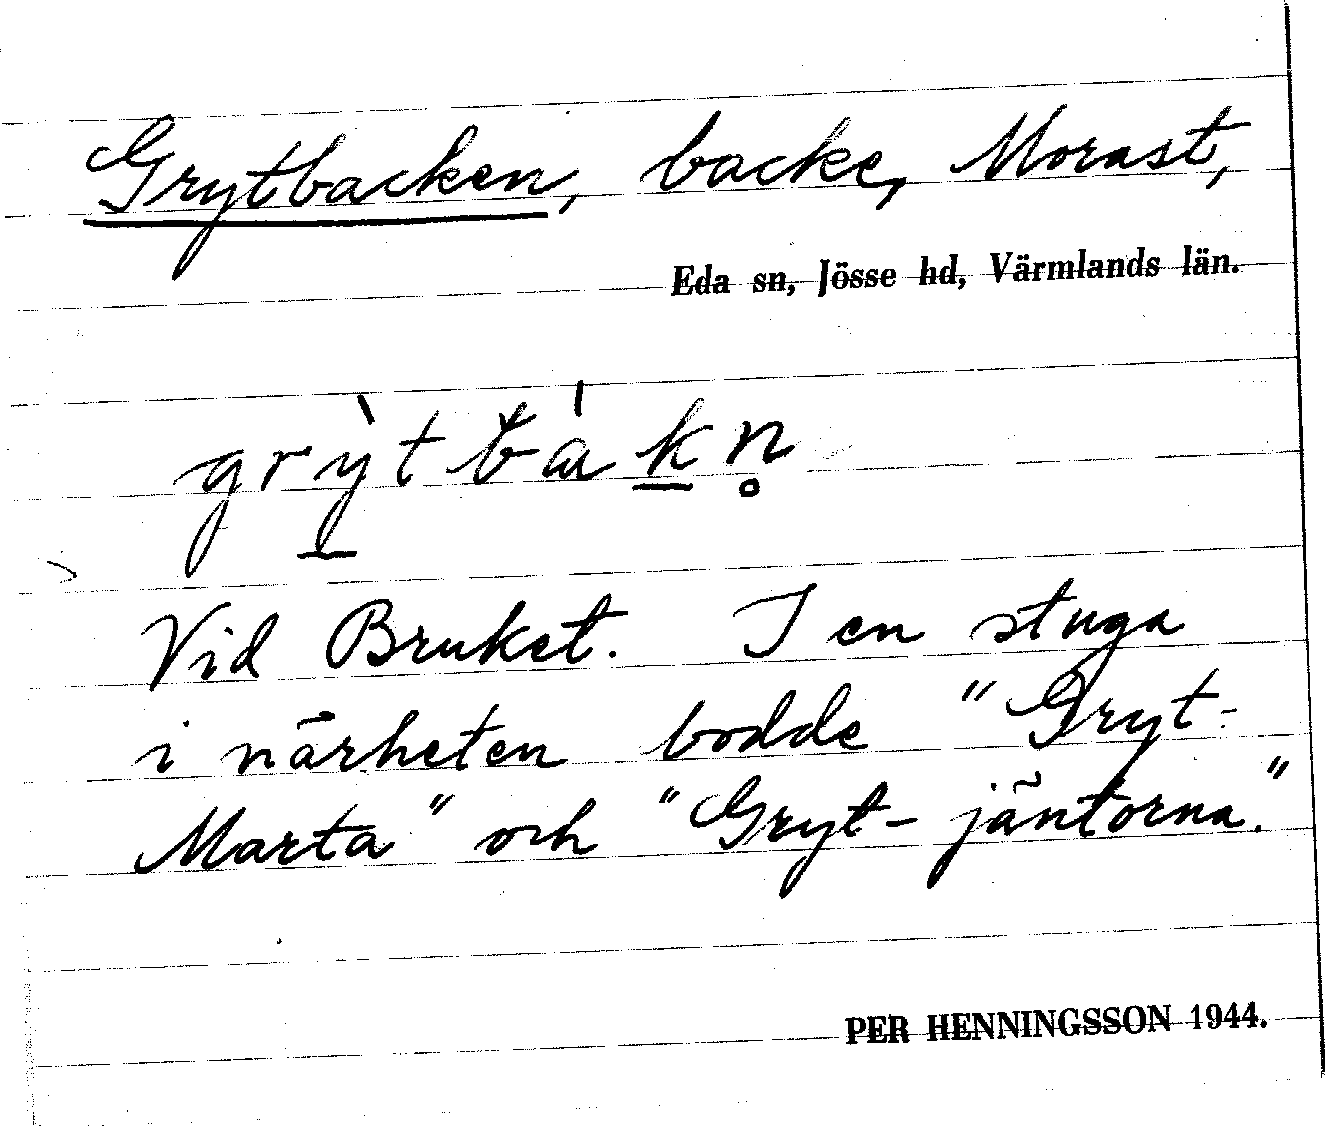 Grytbacken, backe, Morast,
Eda sn, Jösse hd, Värmlands län.
grỳtbàk̲n̥
Vid Bruket. I en stuga
i närheten bodde "Gryt-
Marta" och "Gryt-jäntorna."
PER HENNINGSSON 1944.